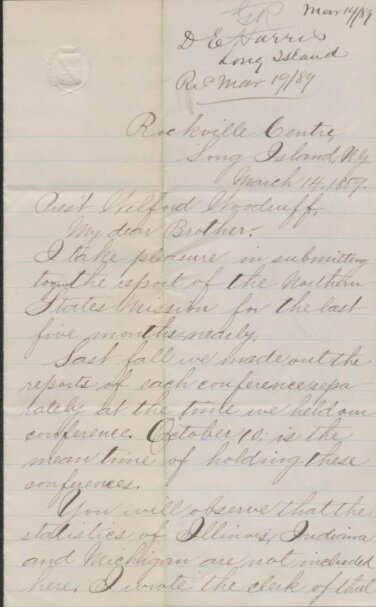 Mar 14/89
D E Harris
Long Island
Rec Mar 19/89
Rockville Centre,
Long Island, N.Y.
March 14, 1889.
Prest Wilford Woodruff,
My dear Brother:
I take pleasure in submitting
to you the report of the Northern
States Mission for the last
five months, nearly.
Last fall we made out the
reports of each conference sepa
rately at the time we held our
conference. October 10. is the
mean time of holding these
conferences.
You will observe that the
statistics of Illinois, Indiana
and Michigan are not included
here. I wrote the clerk of that